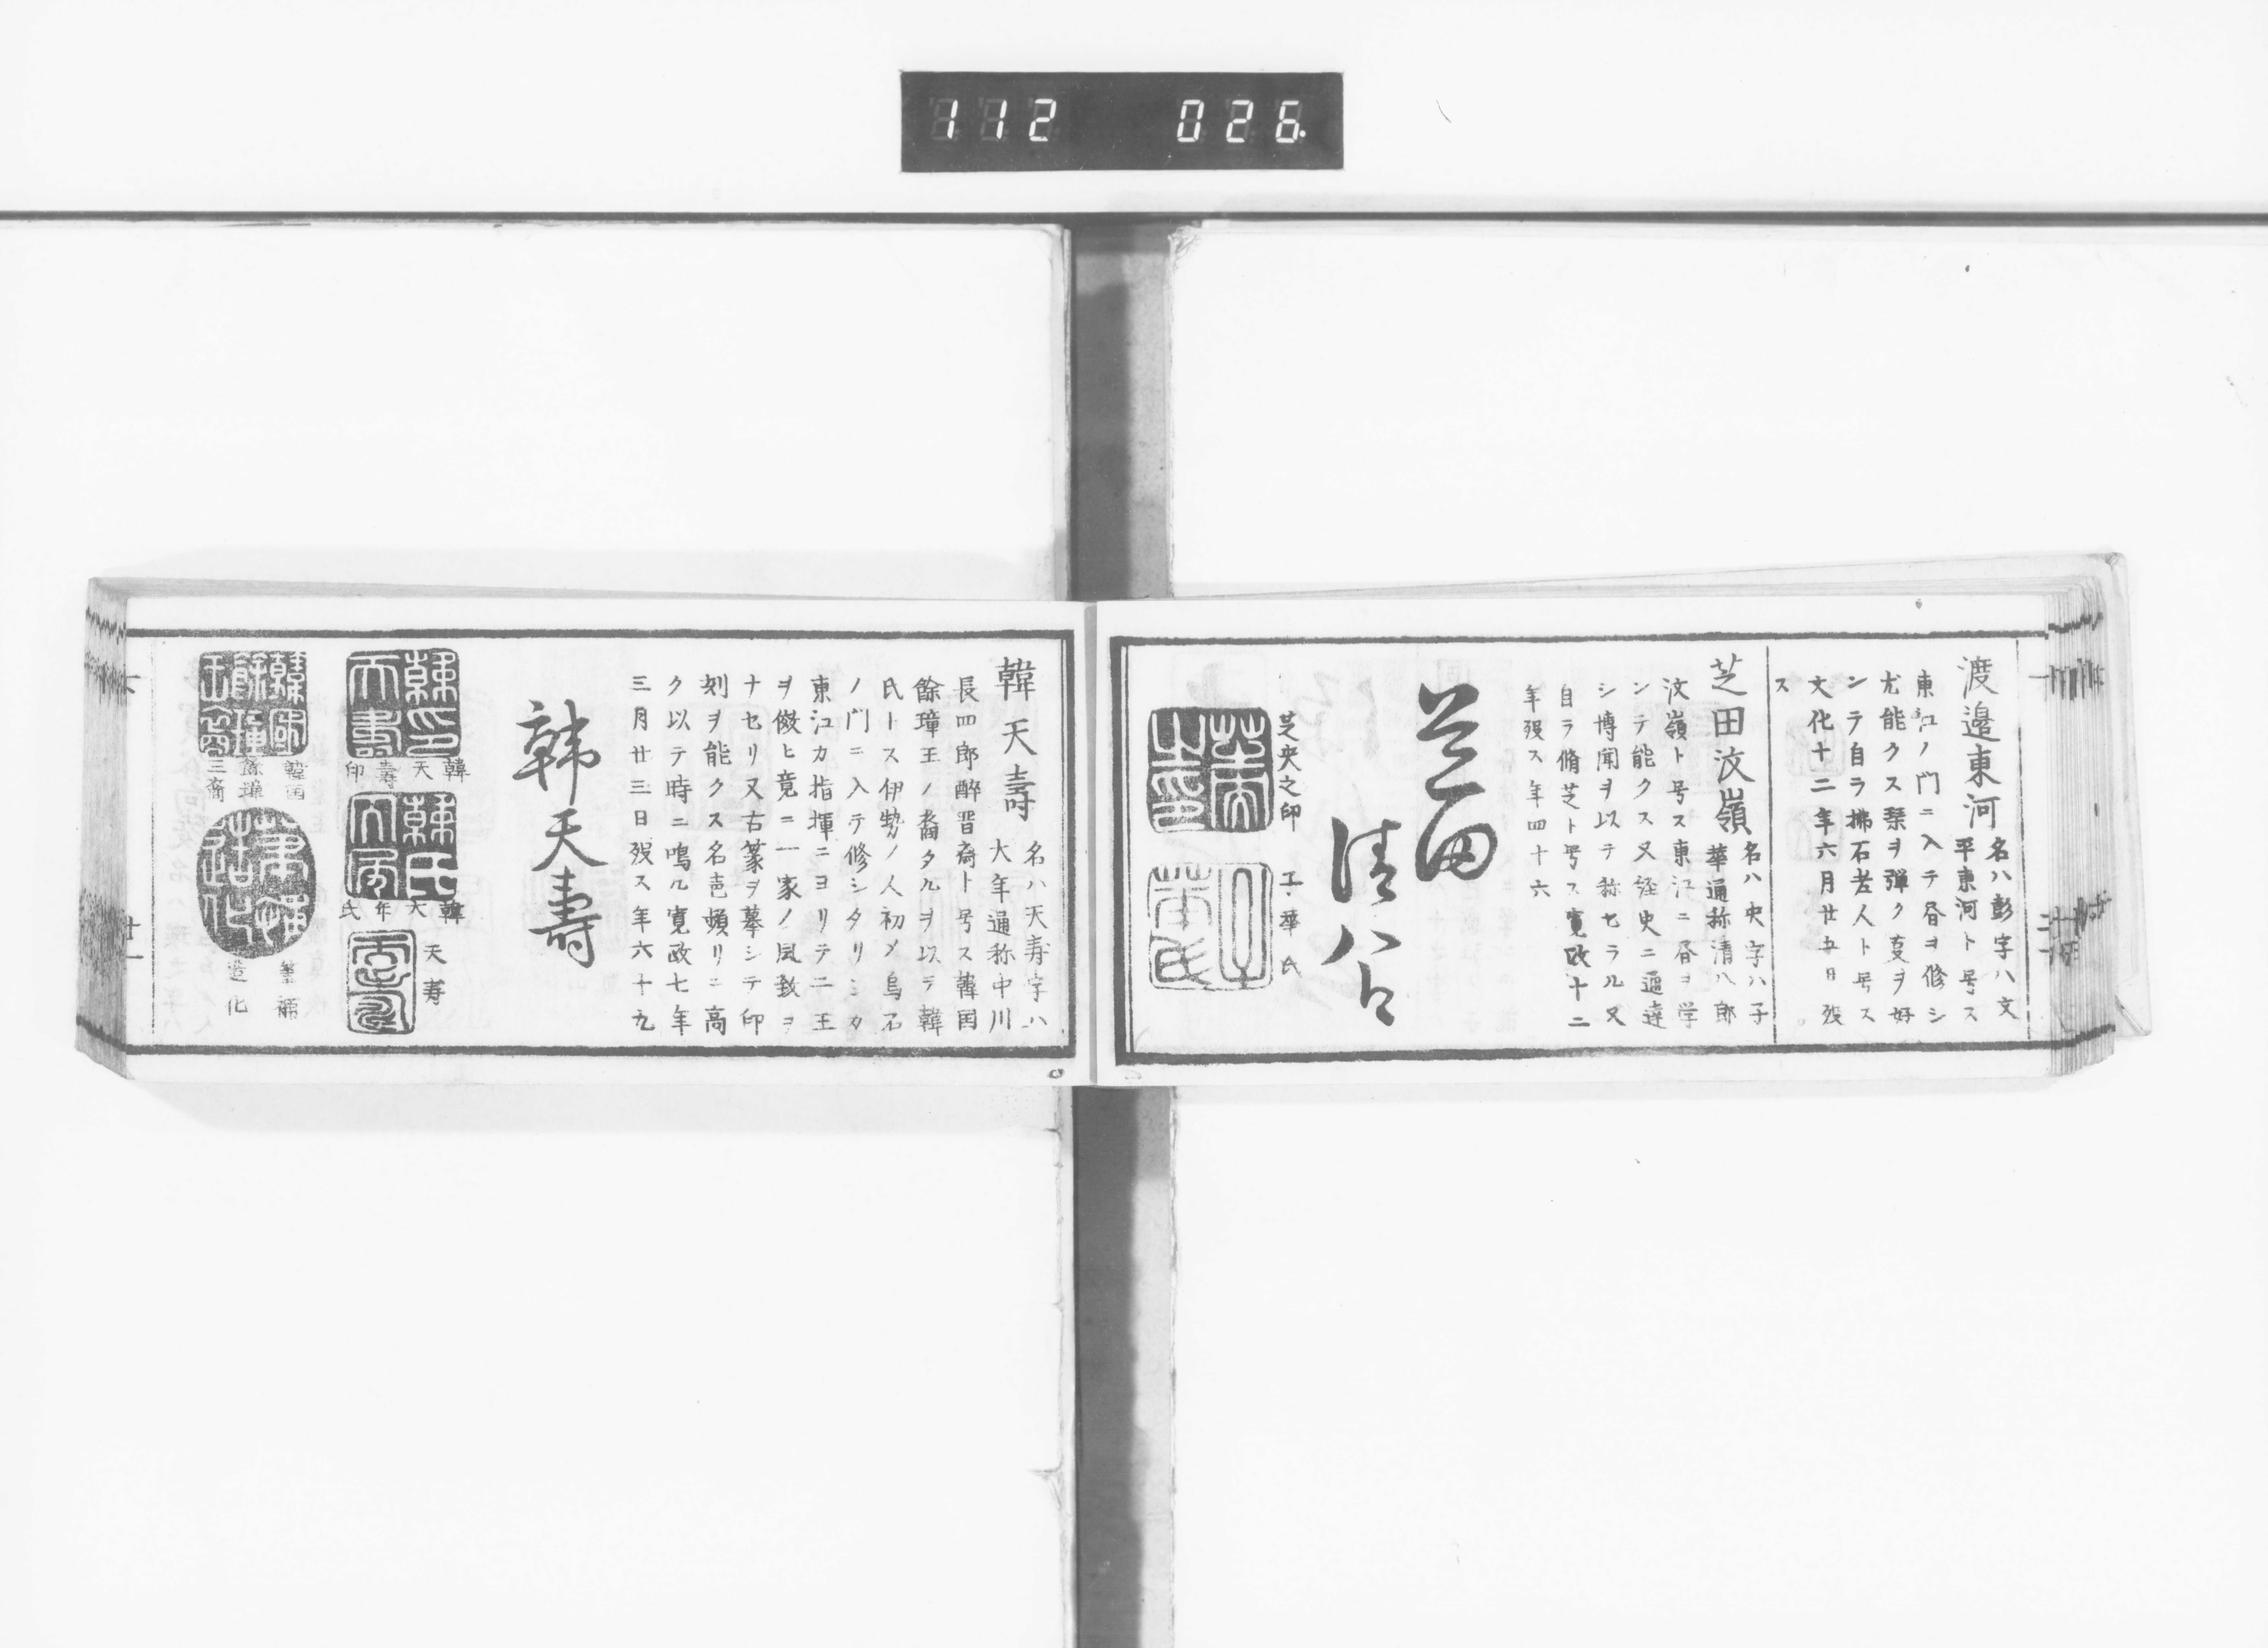 112 026
渡邉東河 名ハ彭字ハ文
平東河ト号ス
東江ノ門ニ入テ昏ヲ修シ
尤能クス琴ヲ弾ク支ヲ好
ンテ自ラ拂石老人ト号ス
文化十二年六月廿五日殁
ス
芝田汶嶺 名ハ央字ハ子
華通称清八郎
汶嶺ト号ス東江ニ昏ヲ学
ンテ能クス又経史ニ通達
シ博聞ヲ以テ称セラル又
自ラ脩芝ト号ス寛政十二
年殁ス年四十六
芝田
清八
芝央之印
子華氏
韓天壽 名ハ天寿字ハ
大年通称中川
長四郎醉晋斎ト号ス韓国
餘璋王ノ裔タルヲ以テ韓
氏トス伊勢ノ人初メ烏石
ノ門ニ入テ修シタリシカ
東江カ指揮ニヨリテ二王
ヲ倣ヒ竟ニ一家ノ風致ヲ
ナセリ又古篆ヲ摹シテ印
刻ヲ能クス名声頗リニ高
ク以テ時ニ鳴ル寛政七年
三月廿三日殁ス年六十九
韓天壽
韓天壽印
韓天年氏
天寿
韓国餘璋王裔
筆補造化
廿一